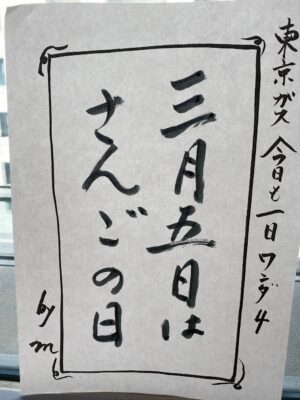 東京ガス 今日も一日ワンダ4
三月五日は
さんごの日
by m